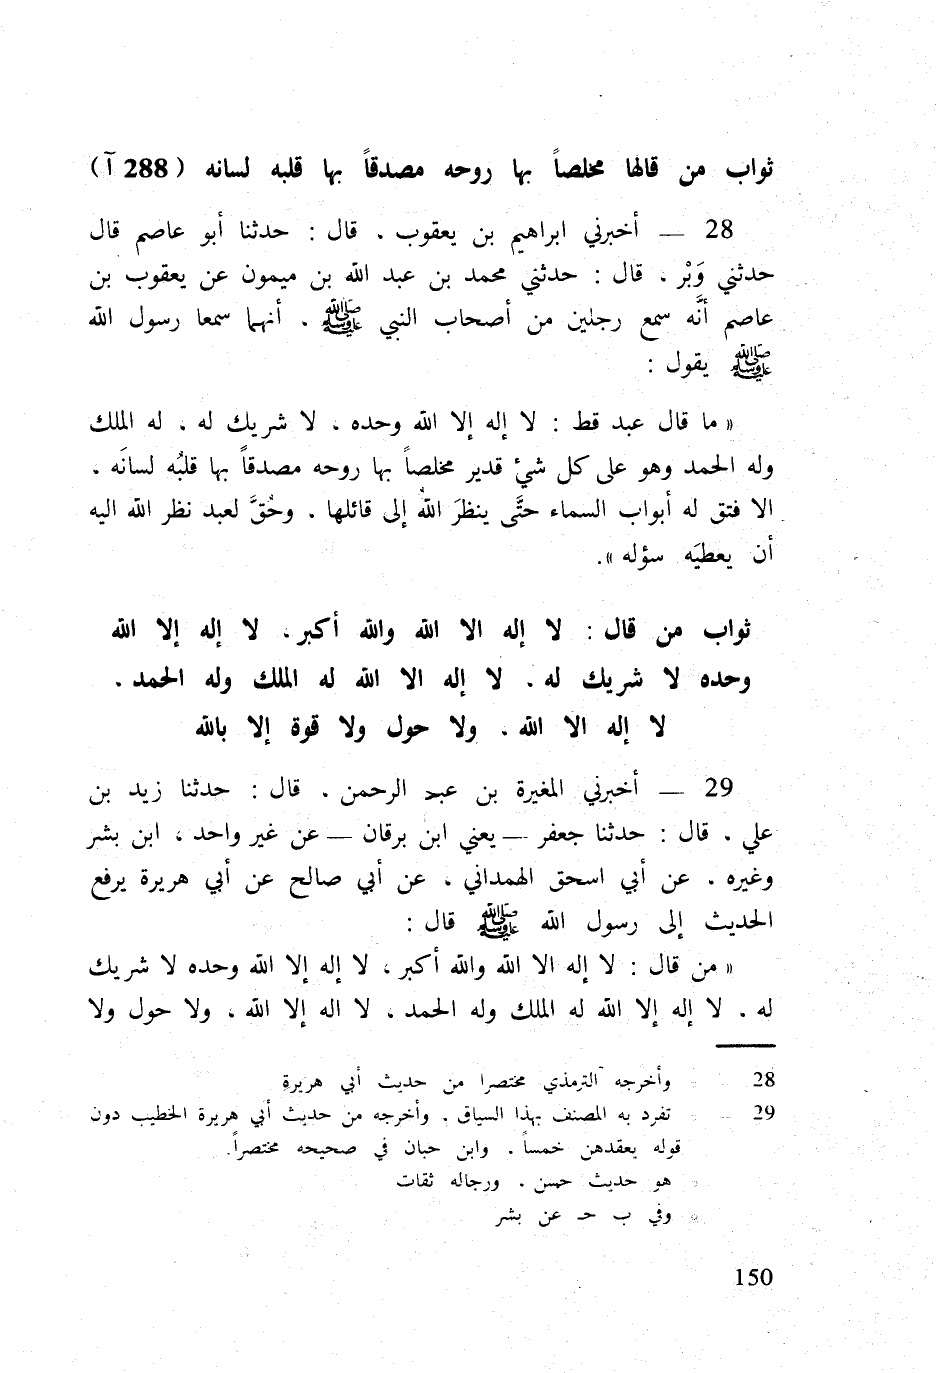 ثواب من قالها مخلصاً بها روحه مصدقاً بها قلبه لسانه ( 288 آ )
28 — أخبرني ابراهيم بن يعقوب . قال : حدثنا أبو عاصم قال
حدثني وَبْر . قال : حدثني محمد بن عبد الله بن ميمون عن يعقوب بن
عاصم أنَّه سمع رجلين من أصحاب النبي ﷺ . أنهما سمعا رسول الله
ﷺ يقول :
« ما قال عبد قط : لا إله إلا الله وحده ، لا شريك له ، له الملك
وله الحمد وهو على كل شيْ قدير مخلصاً بها روحه مصدقاً بها قلبُه لسانَه .
الا فتق له أبواب السماء حتَّى ينظرَ اللهُ إلى قائلها . وحُقَّ لعبد نظر الله اليه
أن يعطيَه سؤله ».
ثواب من قال : لا إله الا الله والله أكبر، لا إله إلا الله
وحده لا شريك له . لا إله الا الله له الملك وله الحمد .
لا إله الا الله . ولا حول ولا قوة إلا بالله
29 — أخبرني المغيرة بن عبد الرحمن . قال : حدثنا زيد بن
علي . قال : حدثنا جعفر — يعني ابن برقان — عن غير واحد ، ابن بشر
وغيره . عن أبي اسحق الهمداني ، عن أبي صالح عن أبي هريرة يرفع
الحديث إلى رسول الله ﷺ قال :
« من قال : لا إله الا الله والله أكبر ، لا إله إلا الله وحده لا شريك
له . لا إله إلا الله له الملك وله الحمد ، لا اله إلا الله ، ولا حول ولا
28 وأخرجه الترمذي مختصرا من حديث أبي هريرة
29 تفرد به المصنف بهذا السياق . وأخرجه من حديث أبي هريرة الخطيب دون
قوله يعقدهن خمساً . وابن حبان في صحيحه مختصراً.
هو حديث حسن . ورجاله ثقات
وفي ب حـ عن بشر
150